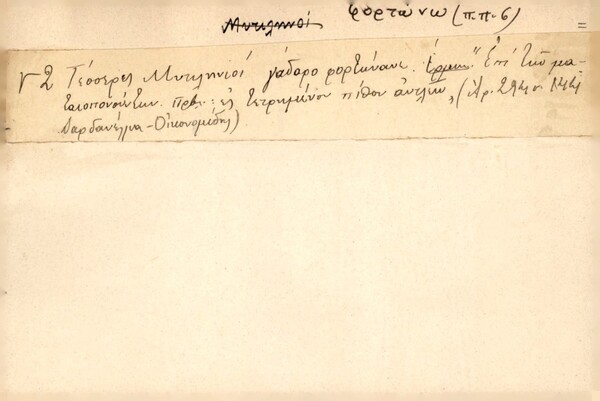 Μυτιληνοί φορτώνω (π.π. 6)
γ2 Τέσσερες Μυτιληνιοί γάδαρο φορτώνανε. Ἑρμ. "Ἐπί τῶν μα-
ταιοπονούντων. Πρβ.: εἰς τετρημένον πίθον ἀντλεῖν,, (Ἀρ. 294
Δαρδανέλλια - Οἰκονομίδης)